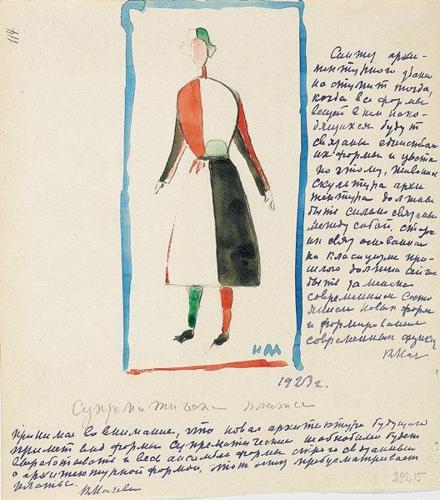 114
Синтез архи-
тектурного здания
наступит тогда,
когда все формы
вещей в нем нахо-
дящихся будут
связаны единством
их формы и цвета
поэтому, живопись
скульптура архи
тектура должны
быть сильно связаны
между собой,
их связь основанная
на класицизме про-
шлого должна
быть заменена
современным
новых форм
и формирования
современных функц
К Мал
КМ
1923 г.
Супрематическое платье
принимая во внимание, что новая архитектура будущаго
примет вид форм Супрематических необходимо будет
выработать и весь ансамбль форм строго связанный
с архитектурной формой, этот эскиз предусматривает
платье.
К Малевич
29215